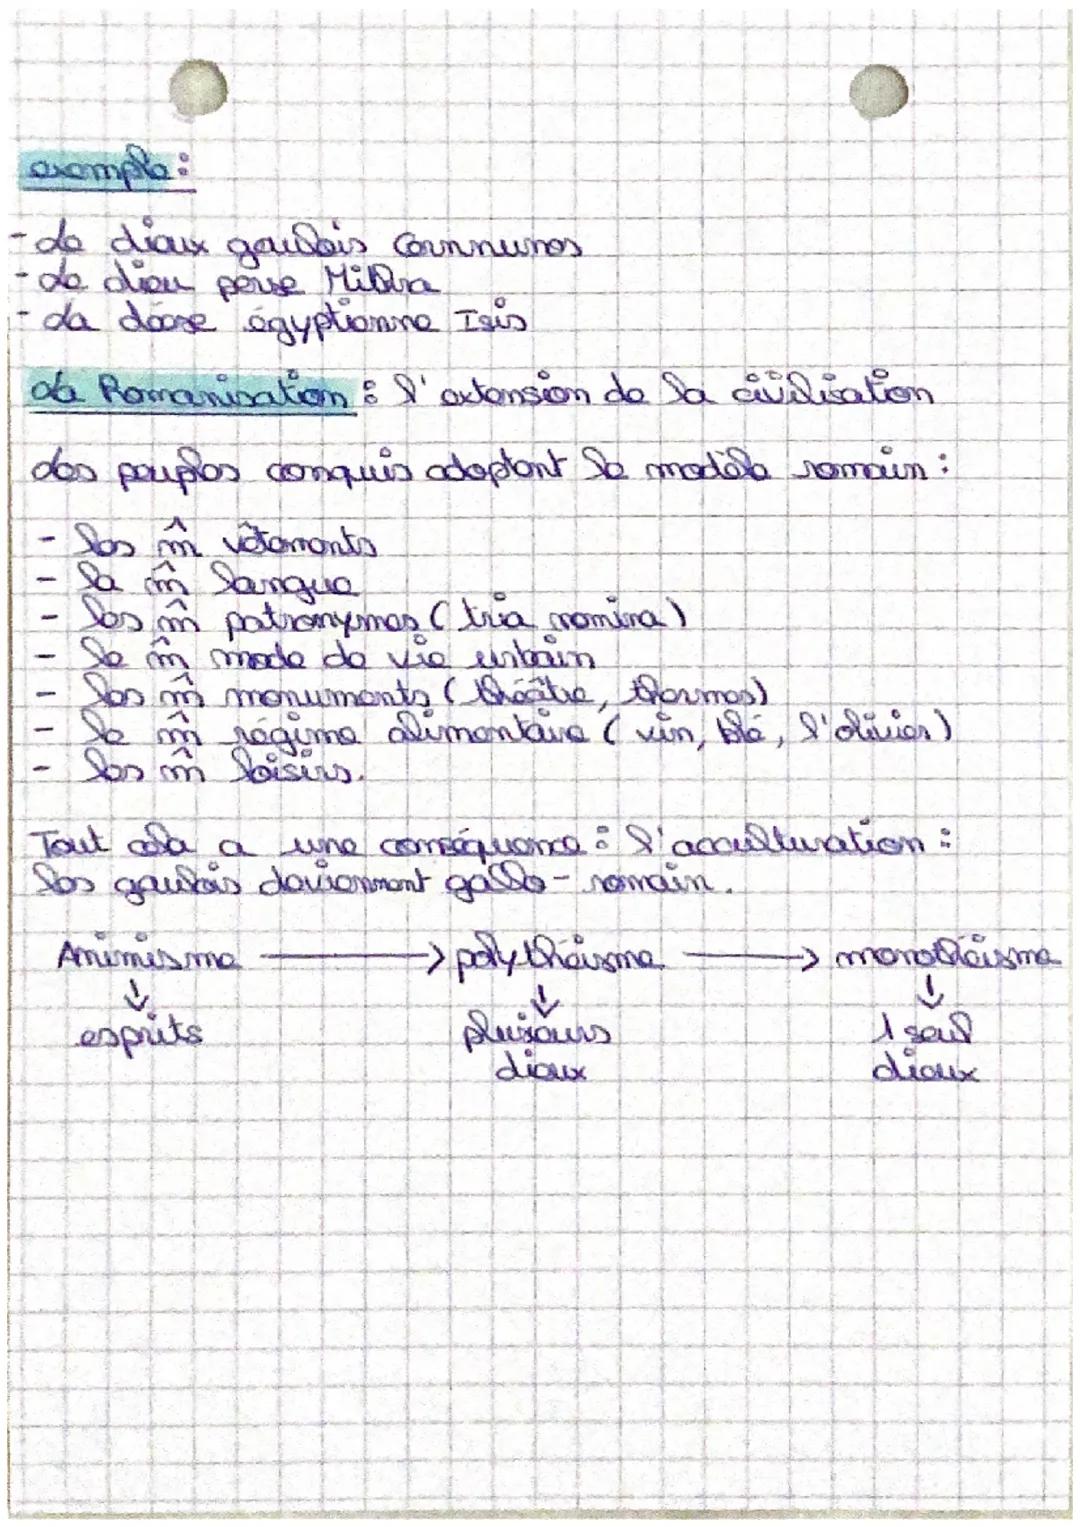 exemple :
- Le dieux gaulois Cernnunos
- Le dieu perse Mithra
- La déese égyptienne Isis
La Romanisation : l'extension de la civilisation
Les peuples conquis adoptent le modèle romain :
- les m̂ vêtements
- la m̂ langue
- les m̂ patronymes ( tria nomina )
- le m̂ mode de vie urbain
- les m̂ monuments ( théâtre, thermes)
- le m̂ régime alimentaire ( vin, blé, l'olivier )
- les m̂ loisirs.
Tout cela a une conséquence : l'acculturation :
les gaulois deviennent gallo - romain.
Animisme → polythéisme → monothéisme
↓ ↓ ↓
esprits plusieurs 1 seul
dieux dieux